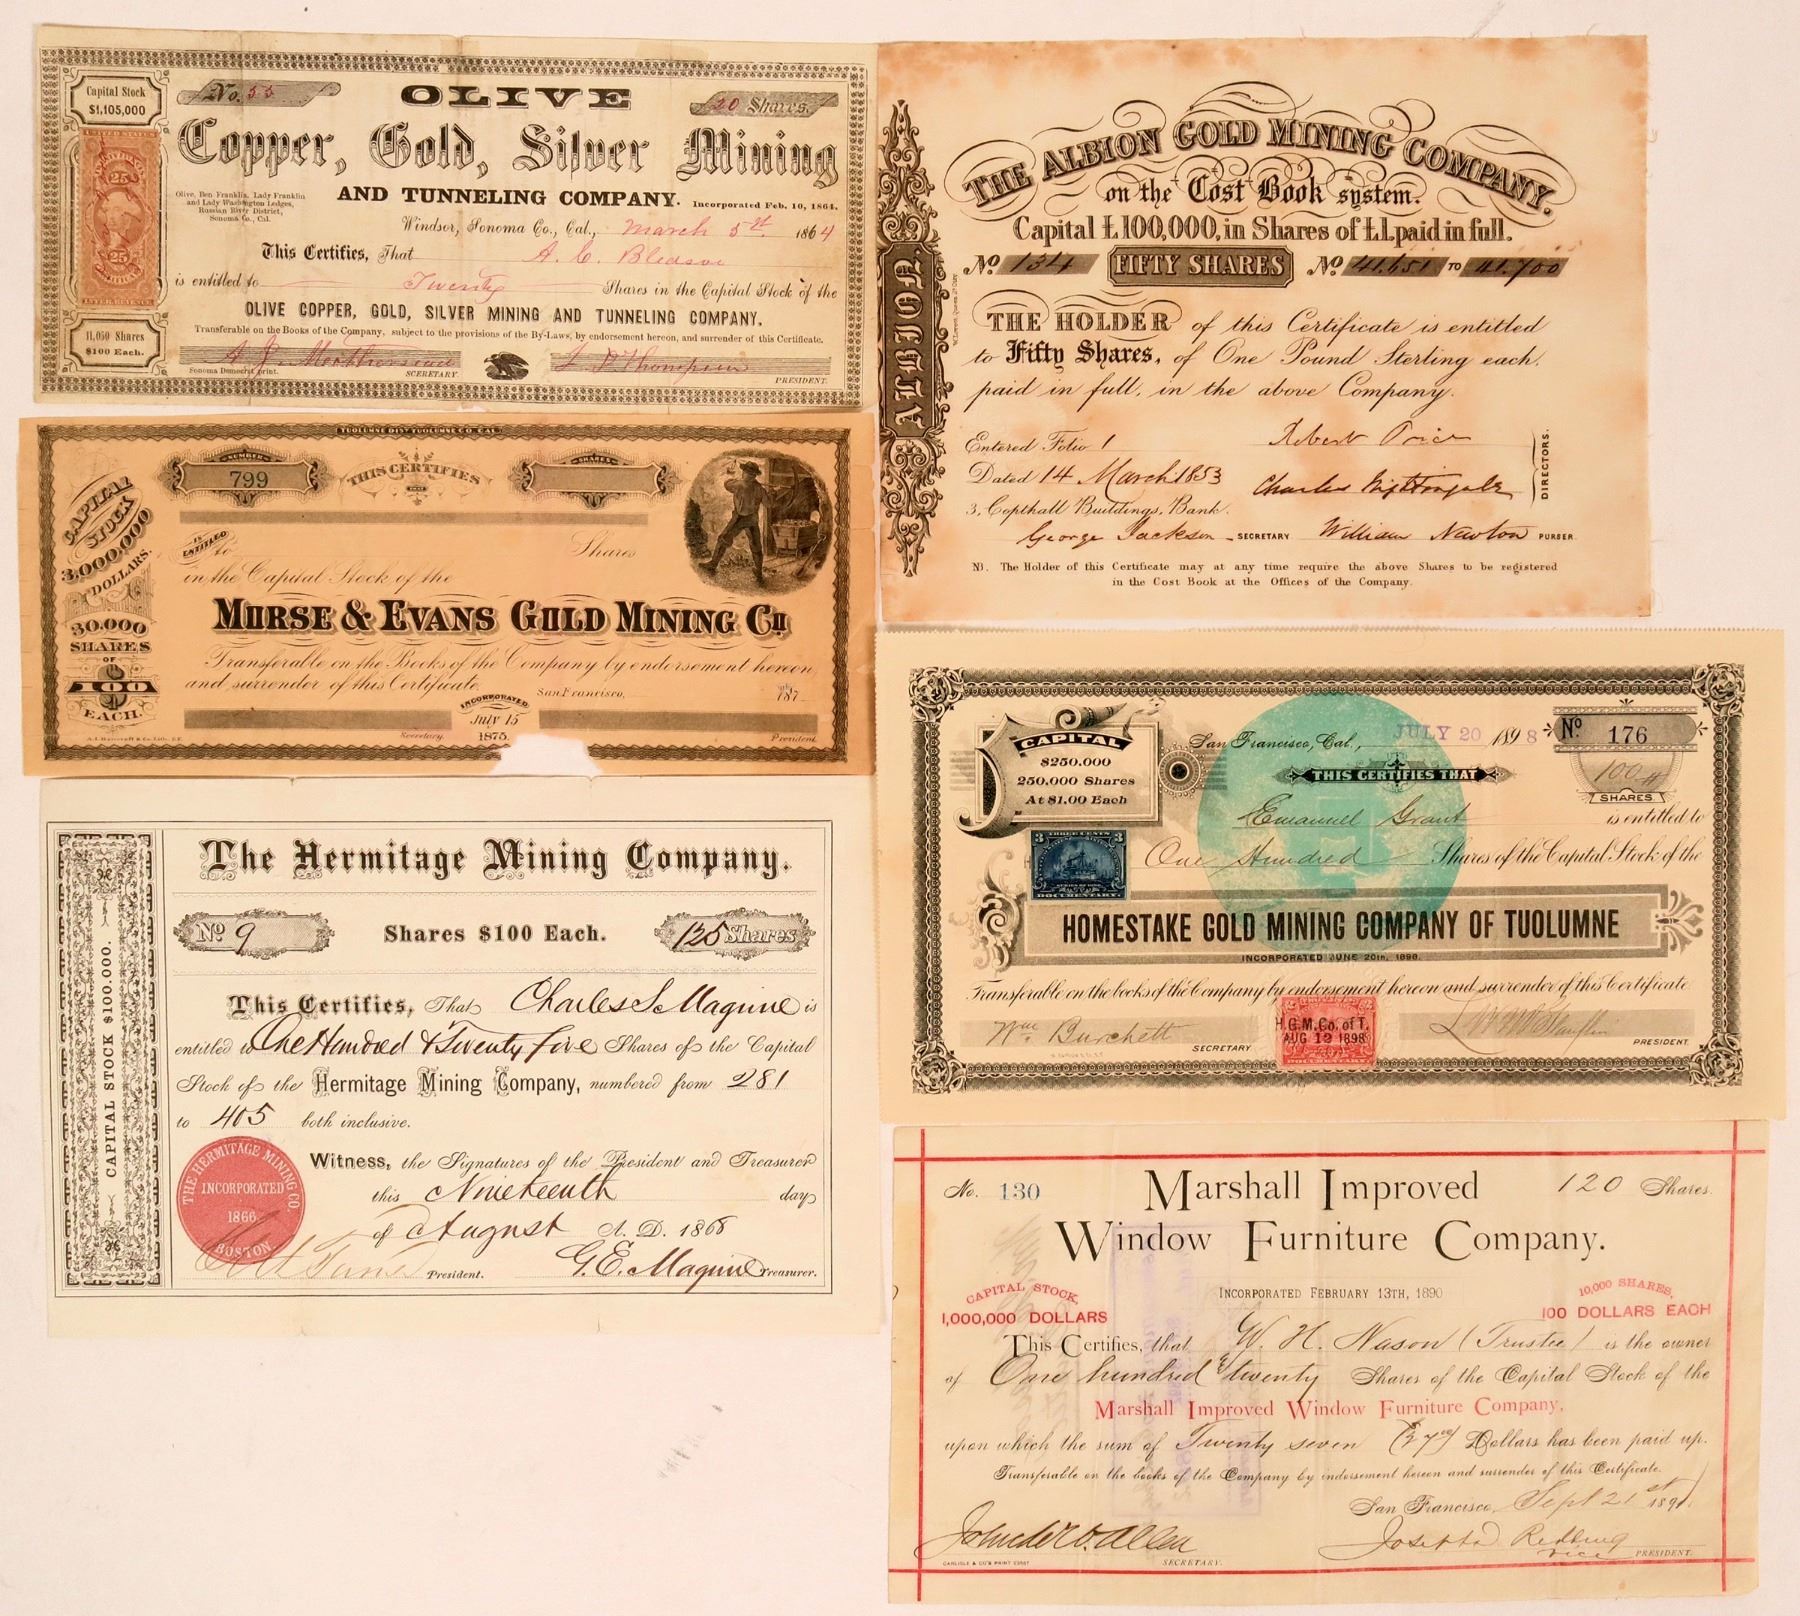 Capital Stock
$1,105,000
No. 55
OLIVE
20 Shares.
Copper, Gold, Silver Mining
AND TUNNELING COMPANY.
Incorporated Feb. 10, 1864.
Olive, Ben Franklin, Lady Franklin
and Lady Washington Ledges,
Russian River District,
Sonoma Co., Cal.
Windsor, Sonoma Co., Cal., March 5th 1864
This Certifies, That A. C. Bledsoe
is entitled to Twenty Shares in the Capital Stock of the
OLIVE COPPER, GOLD, SILVER MINING AND TUNNELING COMPANY.
Transferable on the Books of the Company, subject to the provisions of the By-Laws, by endorsement hereon, and surrender of this Certificate.
11,050 Shares
$100 Each.
Sonoma Democrat print.
SCERETARY.
Thompson
PRESIDENT.
UNITED STATES
25
25
INTER. REVENUE.
THE ALBION GOLD MINING COMPANY.
on the Cost Book system.
Capital £100,000, in Shares of £1. paid in full.
No 134 FIFTY SHARES No 41.651 TO 41.700
ALBION
THE HOLDER of this Certificate is entitled
to Fifty Shares, of One Pound Sterling each,
paid in full, in the above Company.
Entered Folio 1
Robert Price
Dated 14 March 1853
Charles Nightingale
DIRECTORS.
3, Copthall Buildings, Bank.
George Jackson SECRETARY William Newton PURSER
NB. The Holder of this Certificate may at any time require the above Shares to be registered
in the Cost Book at the Offices of the Company.
TUOLUMNE DIST TUOLUMNE CO. CAL.
CAPITAL
STOCK
3,000,000
DOLLARS.
30.000
SHARES
OF
$100
EACH.
NUMBER
799
THIS CERTIFIES
THAT
SHARES
IS
ENTITLED
to Shares
in the Capital Stock of the
MORSE & EVANS GOLD MINING CO
Transferable on the Books of the Company by endorsement hereon
and surrender of this Certificate
San Francisco, 187
INCORPORATED
July 15
1875.
Secretary.
President.
A.L. Bancroft & Co. Lith. S.F.
CAPITAL
$250.000
250,000 Shares
At $1.00 Each
San Francisco, Cal., JULY 20 1898
No 176
100
SHARES
THIS CERTIFIES THAT
Emanuel Grant is entitled to
One Hundred Shares of the Capital Stock of the
3 THREE CENTS 3
DOCUMENTARY
HOMESTAKE GOLD MINING COMPANY OF TUOLUMNE
INCORPORATED JUNE 20th, 1898.
Transferable on the books of the Company by endorsement hereon and surrender of this Certificate
Wm Burchett
SECRETARY
H.G.M.Co. of T.
AUG 12 1898
DOCUMENTARY
PRESIDENT.
The Hermitage Mining Company.
No 9
Shares $100 Each.
125 Shares
CAPITAL STOCK $100.000.
This Certifies, That Charles S. Maguire is
entitled to One Hundred & Twenty five Shares of the Capital
Stock of the Hermitage Mining Company, numbered from 281
to 405 both inclusive.
THE HERMITAGE MINING CO
INCORPORATED
1866
BOSTON
Witness, the Signatures of the President and Treasurer
this Nineteenth day
of August A. D. 1868
President.
G. E. Maguire Treasurer.
No. 130
Marshall Improved
120 Shares.
Window Furniture Company.
INCORPORATED FEBRUARY 13TH, 1890
CAPITAL STOCK,
1,000,000 DOLLARS
10,000 SHARES,
100 DOLLARS EACH
This Certifies, that W. H. Nason (Trustee) is the owner
of One hundred & twenty Shares of the Capital Stock of the
Marshall Improved Window Furniture Company,
upon which the sum of Twenty seven Dollars has been paid up.
Transferable on the books of the Company by indorsement hereon and surrender of this Certificate.
San Francisco, Sept 21st 1891
Allen
SECRETARY.
CARLISLE & CO'S PRINT
Joseph Redding
Vice PRESIDENT.